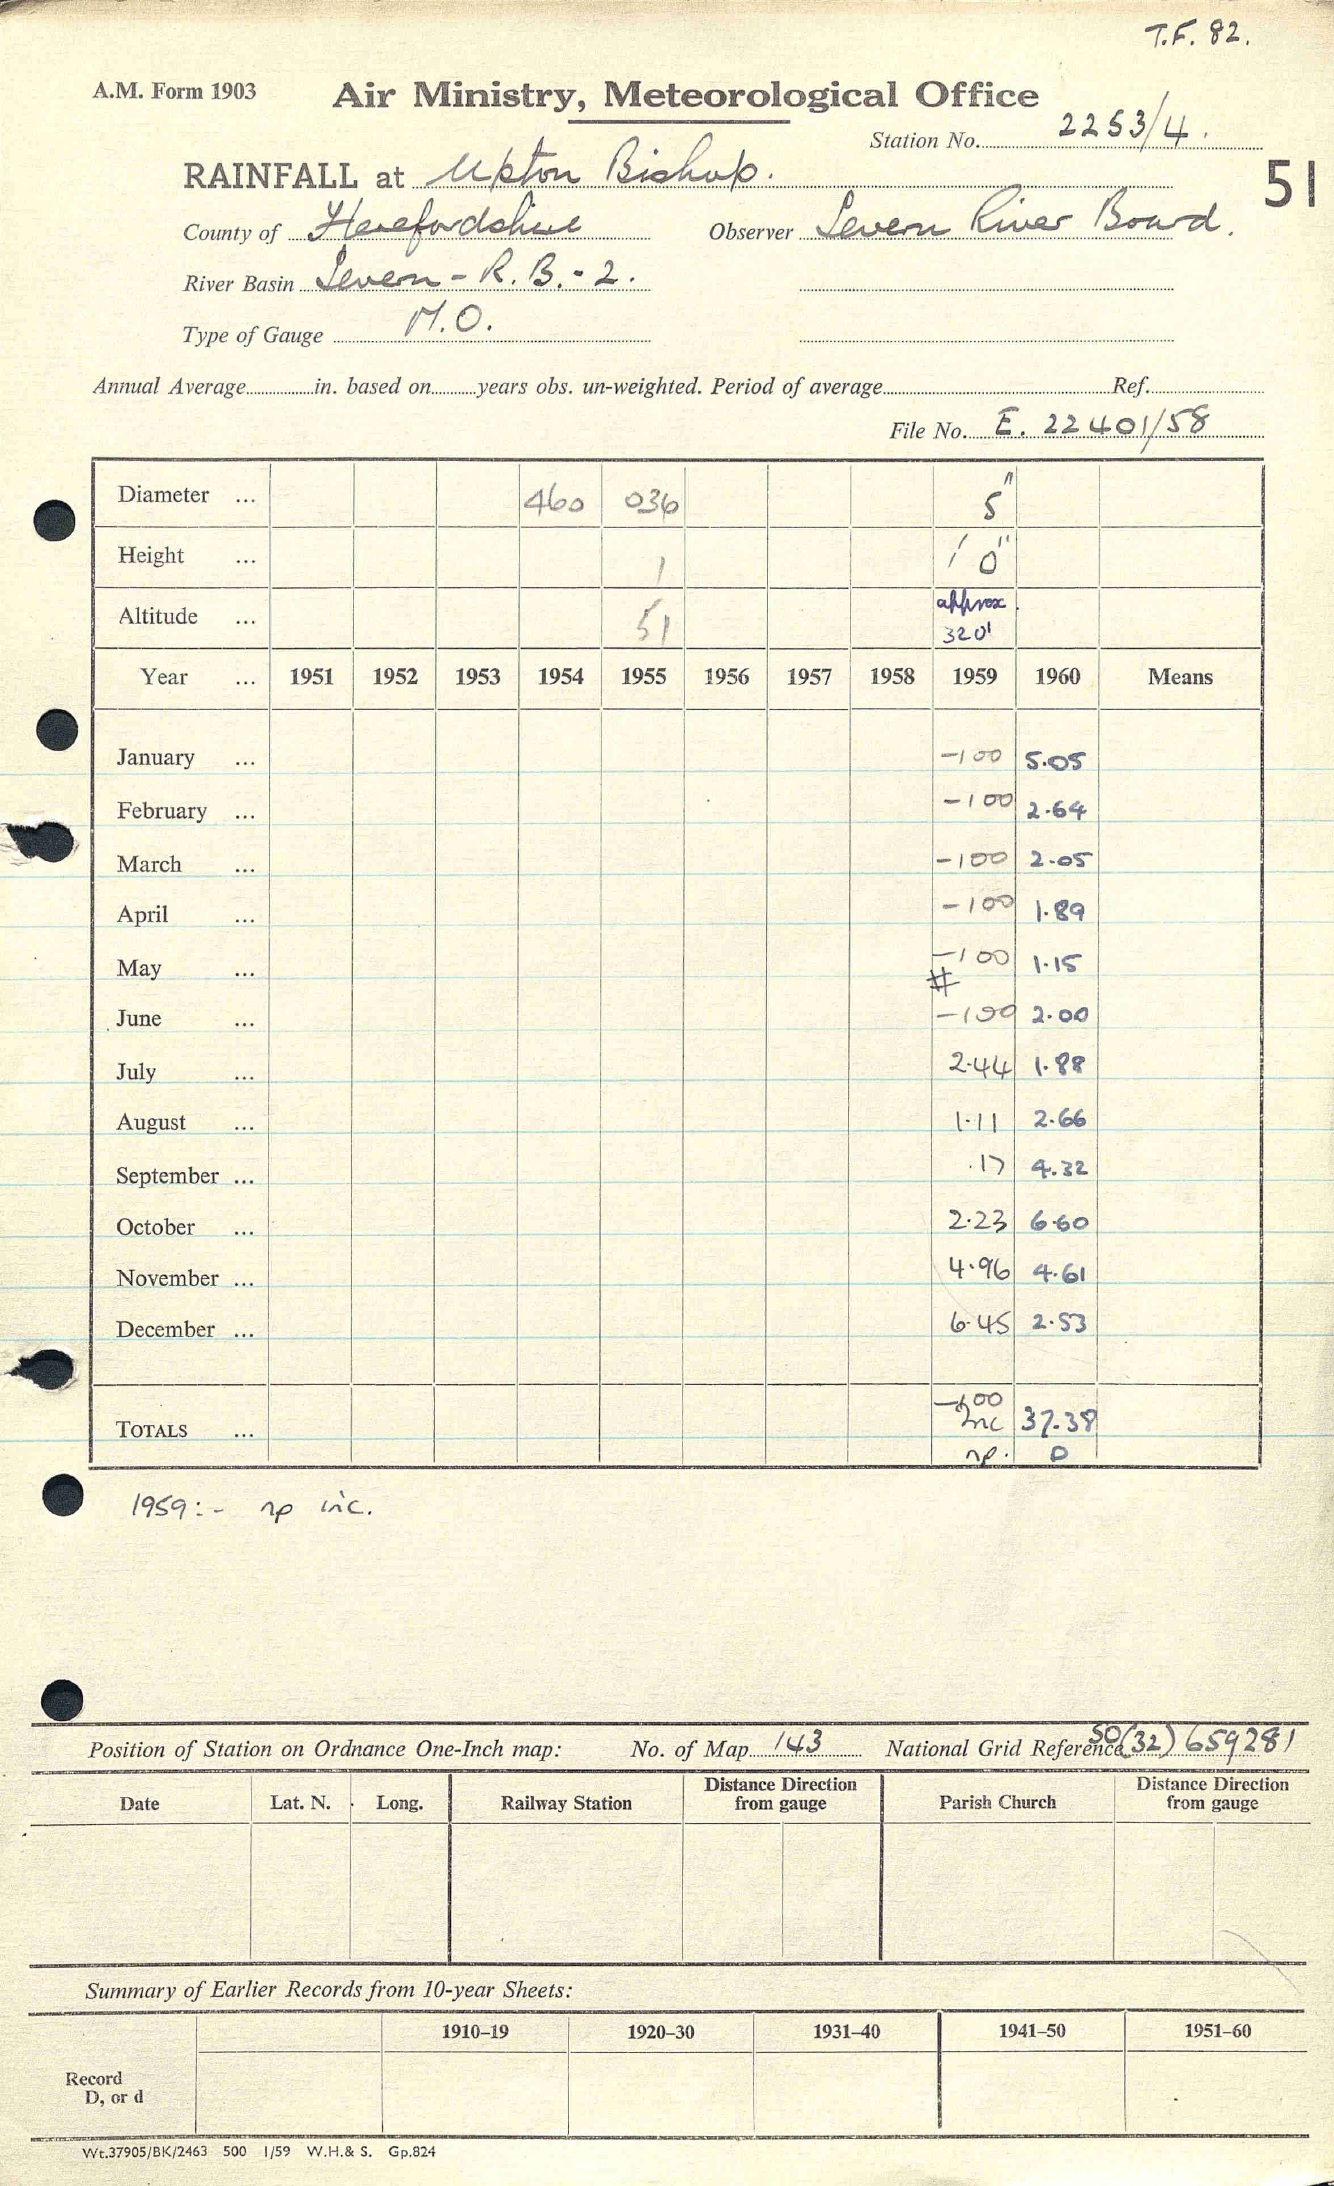 T.F. 82.
A.M. Form 1903 Air Ministry, Meteorological Office
Station No. 2253/4.
RAINFALL at Upton Bishop. 51
County of Herefordshire Observer Severn River Board.
River Basin Severn - R.B. - 2.
Type of Gauge M.O.
Annual Average in. based on years obs. un-weighted. Period of average Ref.
File No. E. 22401/58
Diameter ... 460 036 5"
Height ... 1 1' 0"
Altitude ... 51 approx. 320'
Year ... 1951 1952 1953 1954 1955 1956 1957 1958 1959 1960 Means
January ... -100 5.05
February ... -100 2.64
March ... -100 2.05
April ... -100 1.89
May ... -100 1.15
#
June ... -100 2.00
July ... 2.44 1.88
August ... 1.11 2.66
September ... .17 4.32
October ... 2.23 6.60
November ... 4.96 4.61
December ... 6.45 2.53
-100
TOTALS ... Inc 37.38
np. D
1959:- np inc.
Position of Station on Ordnance One-Inch map: No. of Map 143 National Grid Reference SO(32) 659281
Date Lat. N. Long. Railway Station Distance Direction from gauge Parish Church Distance Direction from gauge
Summary of Earlier Records from 10-year Sheets:
1910–19 1920–30 1931–40 1941–50 1951–60
Record
D, or d
Wt.37905/BK/2463 500 1/59 W.H.& S. Gp.824